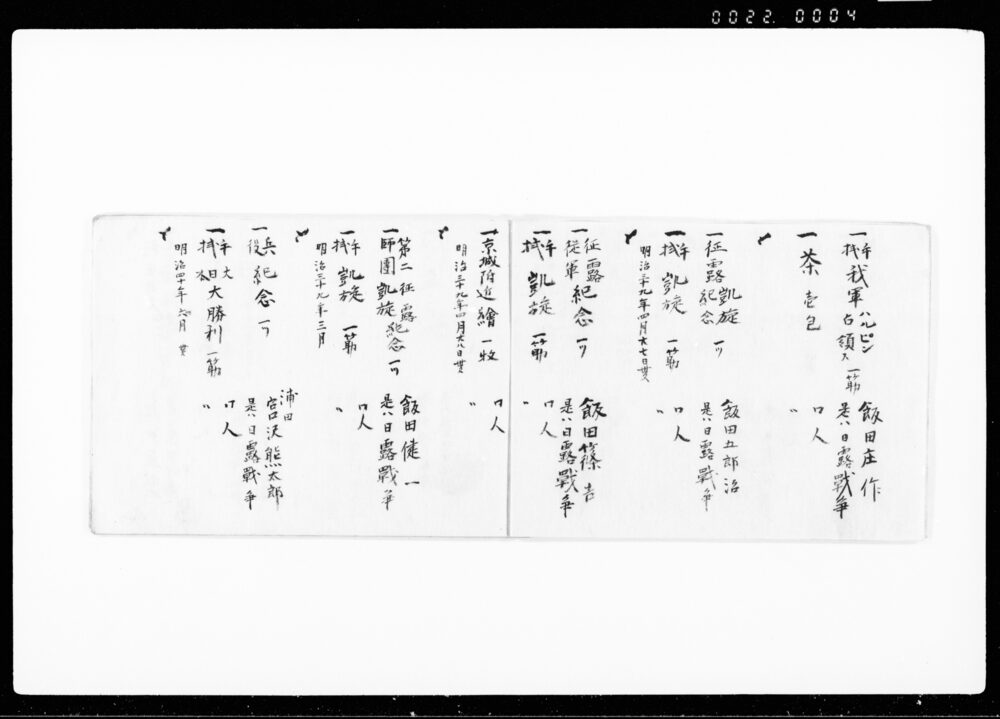 0022. 0004
一手拭我軍ハルピン占領ス 一筋 飯田庄作
是ハ日露戰争
一茶 壱包 〃 口人
一征露凱旋紀念 一ツ 飯田五郎治
是ハ日露戰争
一手拭 凱旋 一筋 〃 口人
明治三十九年四月六七日貰
一征露從軍紀念 一ツ 飯田篠吉
是ハ日露戰争
一手拭 凱旋 一筋 〃 口人
一京城附近繪 一枚 〃 口人
明治三十九年四月六八日貰
一第二師團征露凱旋紀念 一ツ 飯田徒一
是ハ日露戰争
一手拭 凱旋 一筋 〃 口人
明治三十九年三月
一兵役紀念 一ツ 浦田 宮口沢熊太郎
是ハ日露戰争
一手拭 大日本大勝利 一筋 〃 口人
明治四十年六月 貰